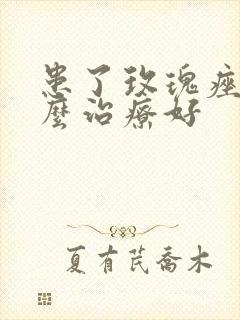 患了玫瑰痤
麼治療好
夏有芪喬木